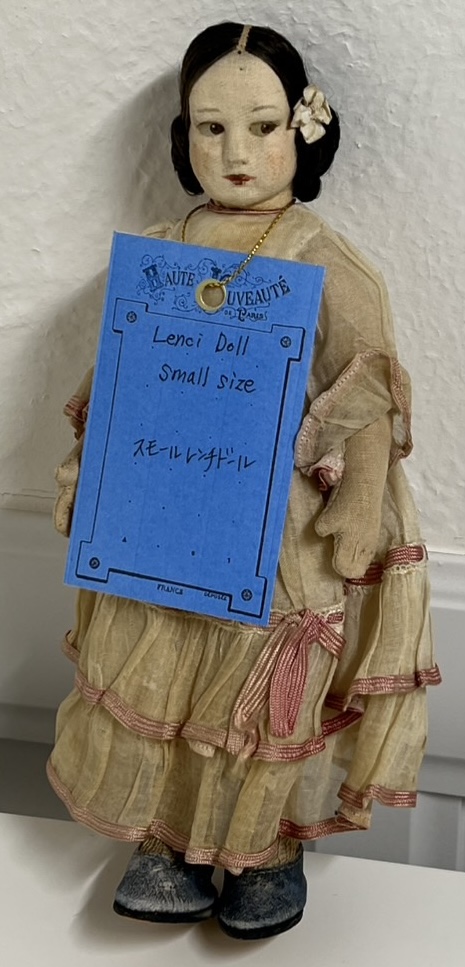 HAUTE NOUVEAUTÉ
DE PARIS
Lenci Doll
small size
スモールレンチドール
FRANCE